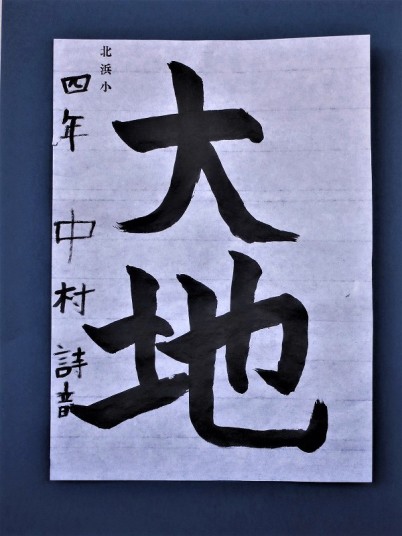 大地
北浜小
四年 中村 詩音